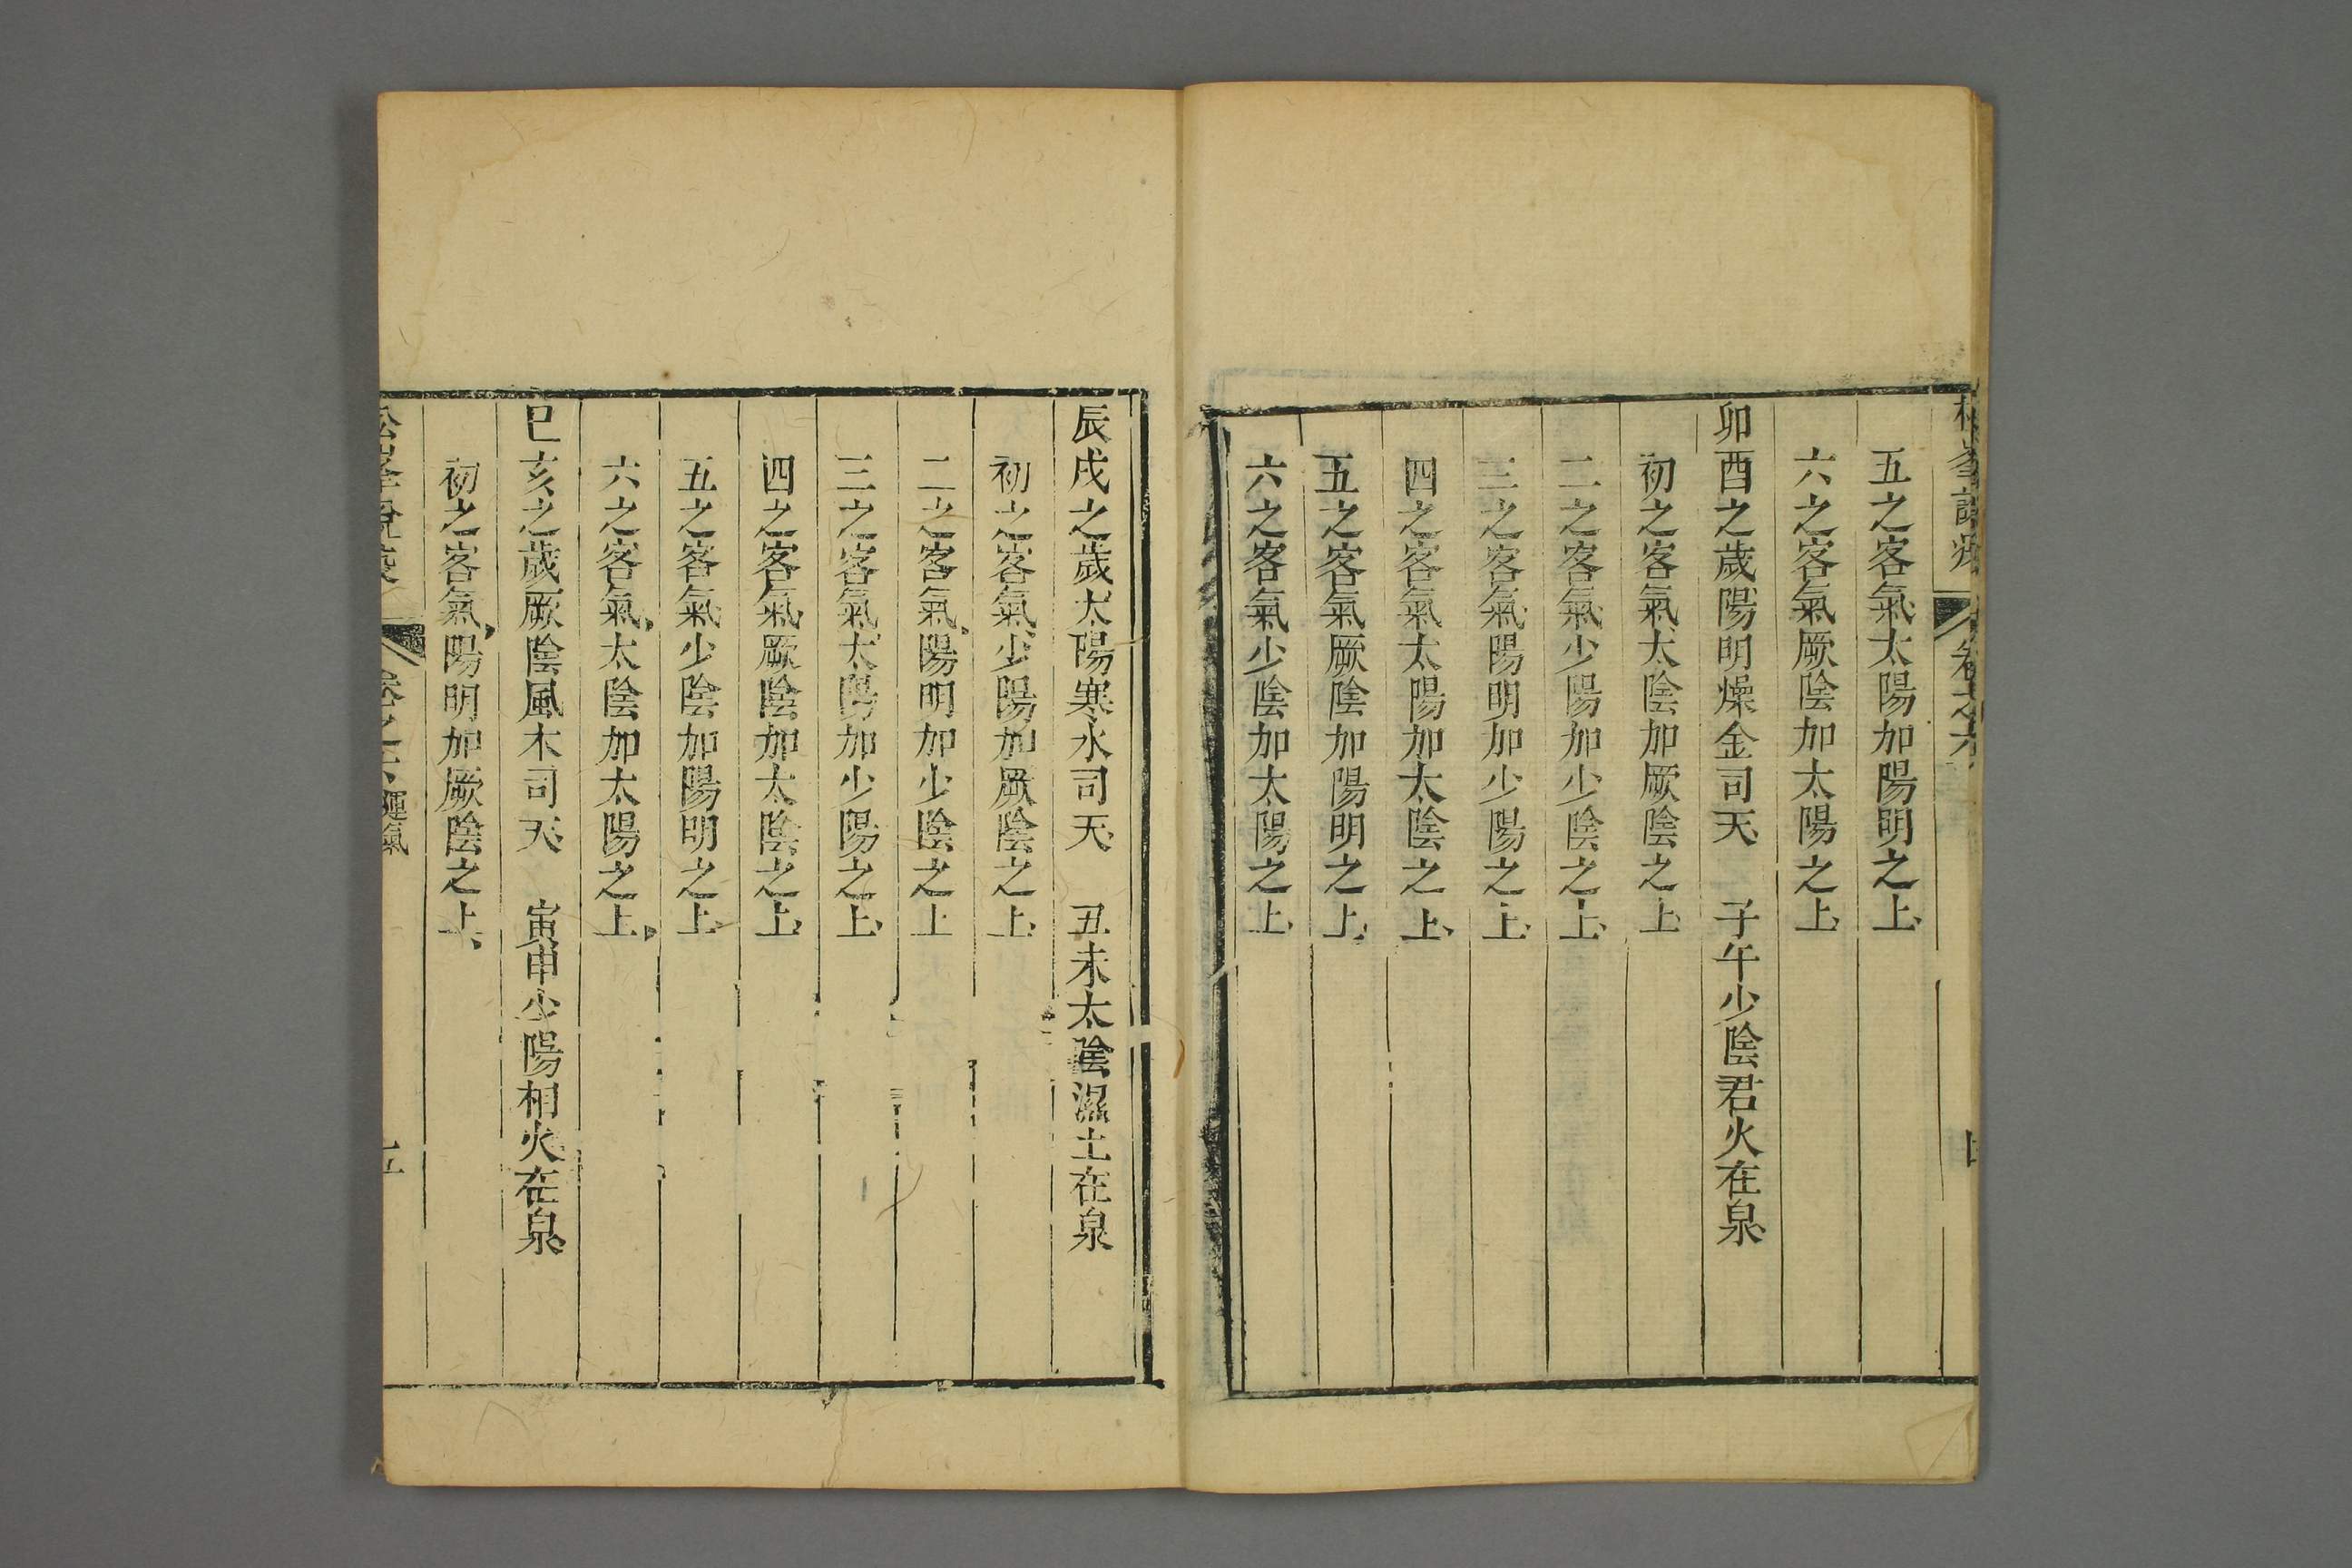 松峯說疫 卷之六
五之客氣太陽加陽明之上
六之客氣厥陰加太陽之上
卯酉之歲陽明燥金司天 子午少陰君火在泉
初之客氣太陰加厥陰之上
二之客氣少陽加少陰之上
三之客氣陽明加少陽之上
四之客氣太陽加太陰之上
五之客氣厥陰加陽明之上
六之客氣少陰加太陽之上
辰戌之歲太陽寒水司天 丑未太陰濕土在泉
初之客氣少陽加厥陰之上
二之客氣陽明加少陰之上
三之客氣太陽加少陽之上
四之客氣厥陰加太陰之上
五之客氣少陰加陽明之上
六之客氣太陰加太陽之上
巳亥之歲厥陰風木司天 寅申少陽相火在泉
初之客氣陽明加厥陰之上
松峯說疫 卷之六 運氣 五